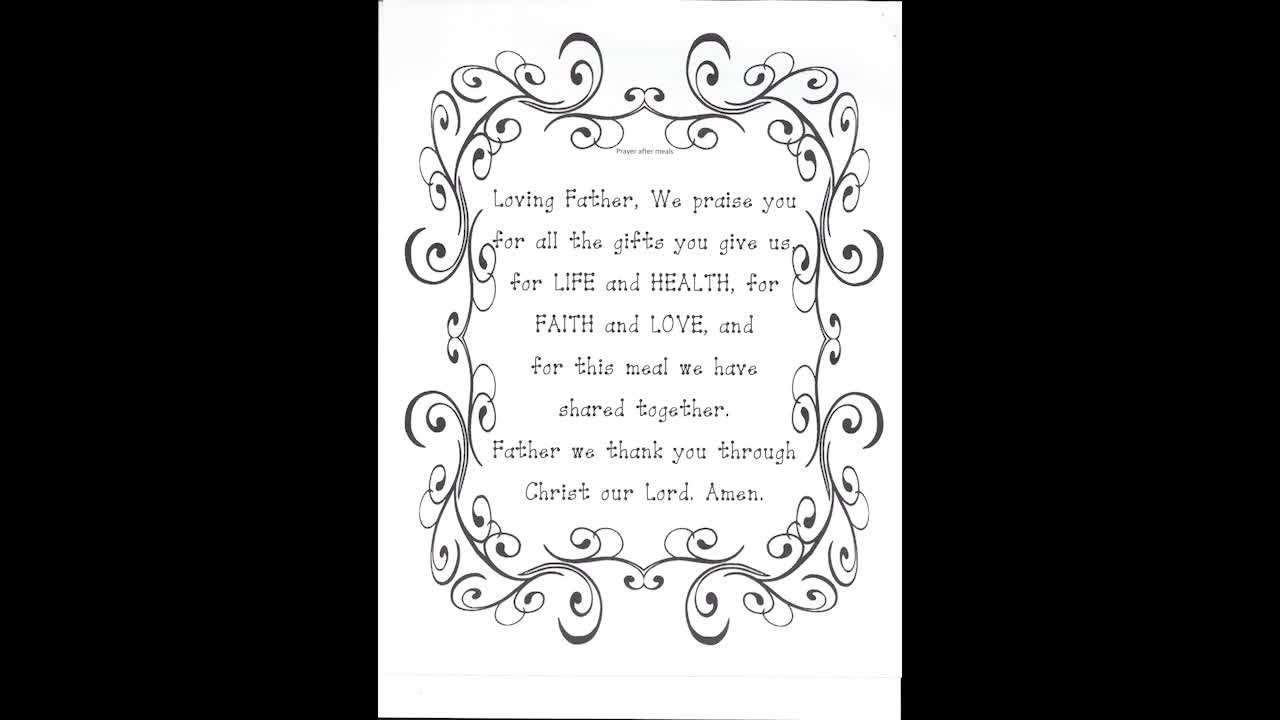 Prayer after meals
Loving Father, We praise you
for all the gifts you give us,
for LIFE and HEALTH, for
FAITH and LOVE, and
for this meal we have
shared together.
Father we thank you through
Christ our Lord. Amen.